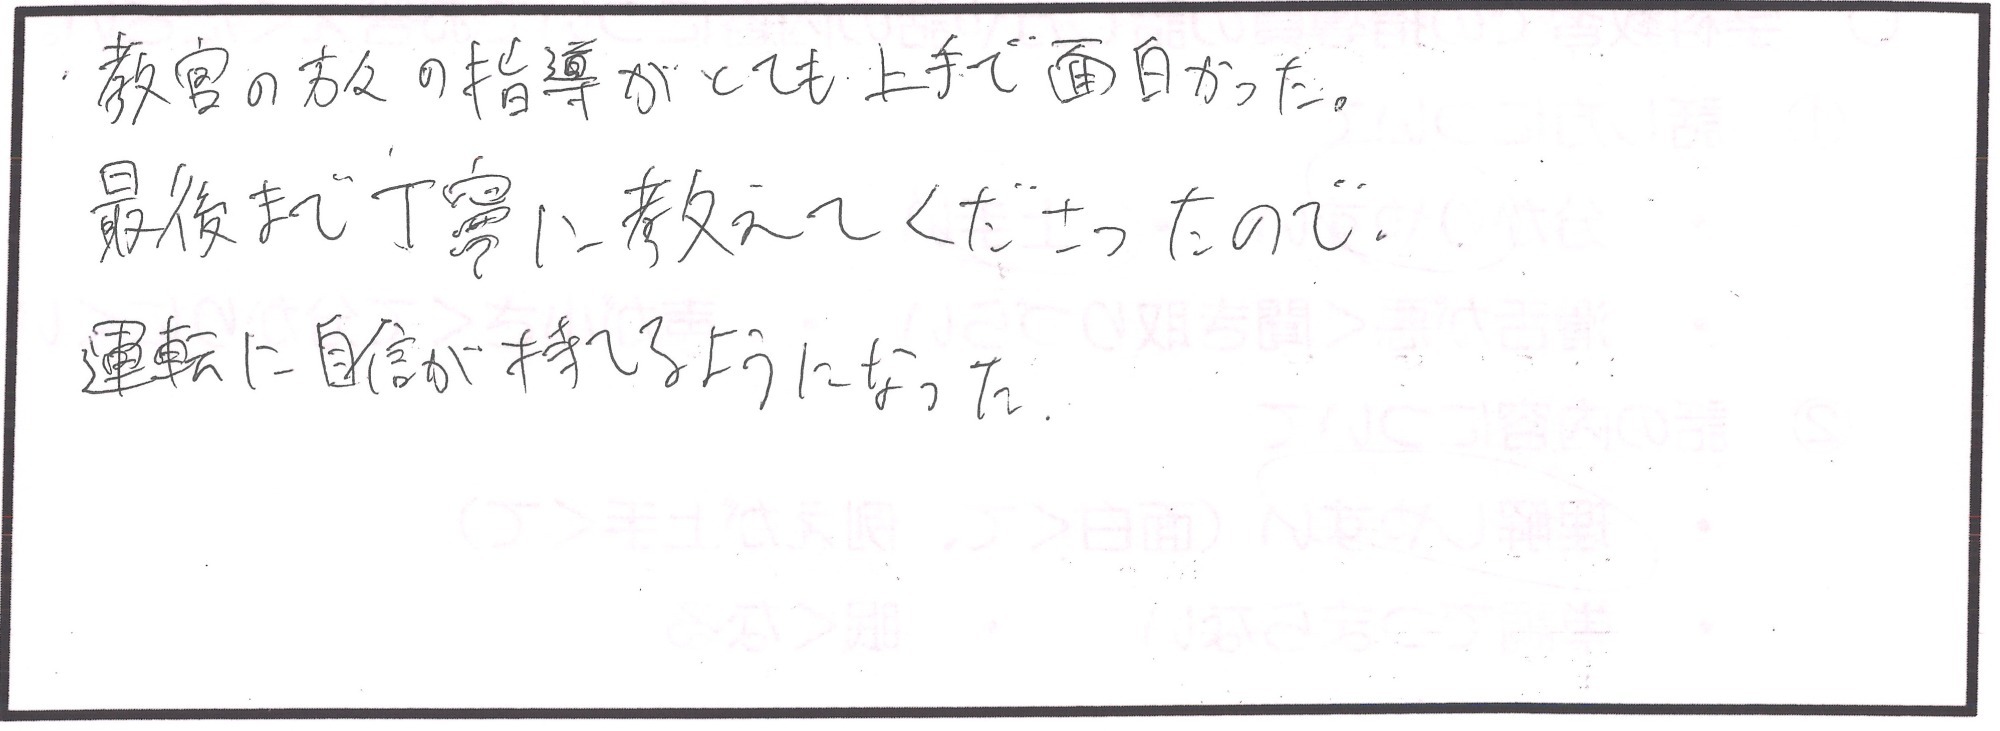 ・教官の方々の指導がとても上手で面白かった。
最後まで丁寧に教えてくださったので、
運転に自信が持てるようになった.